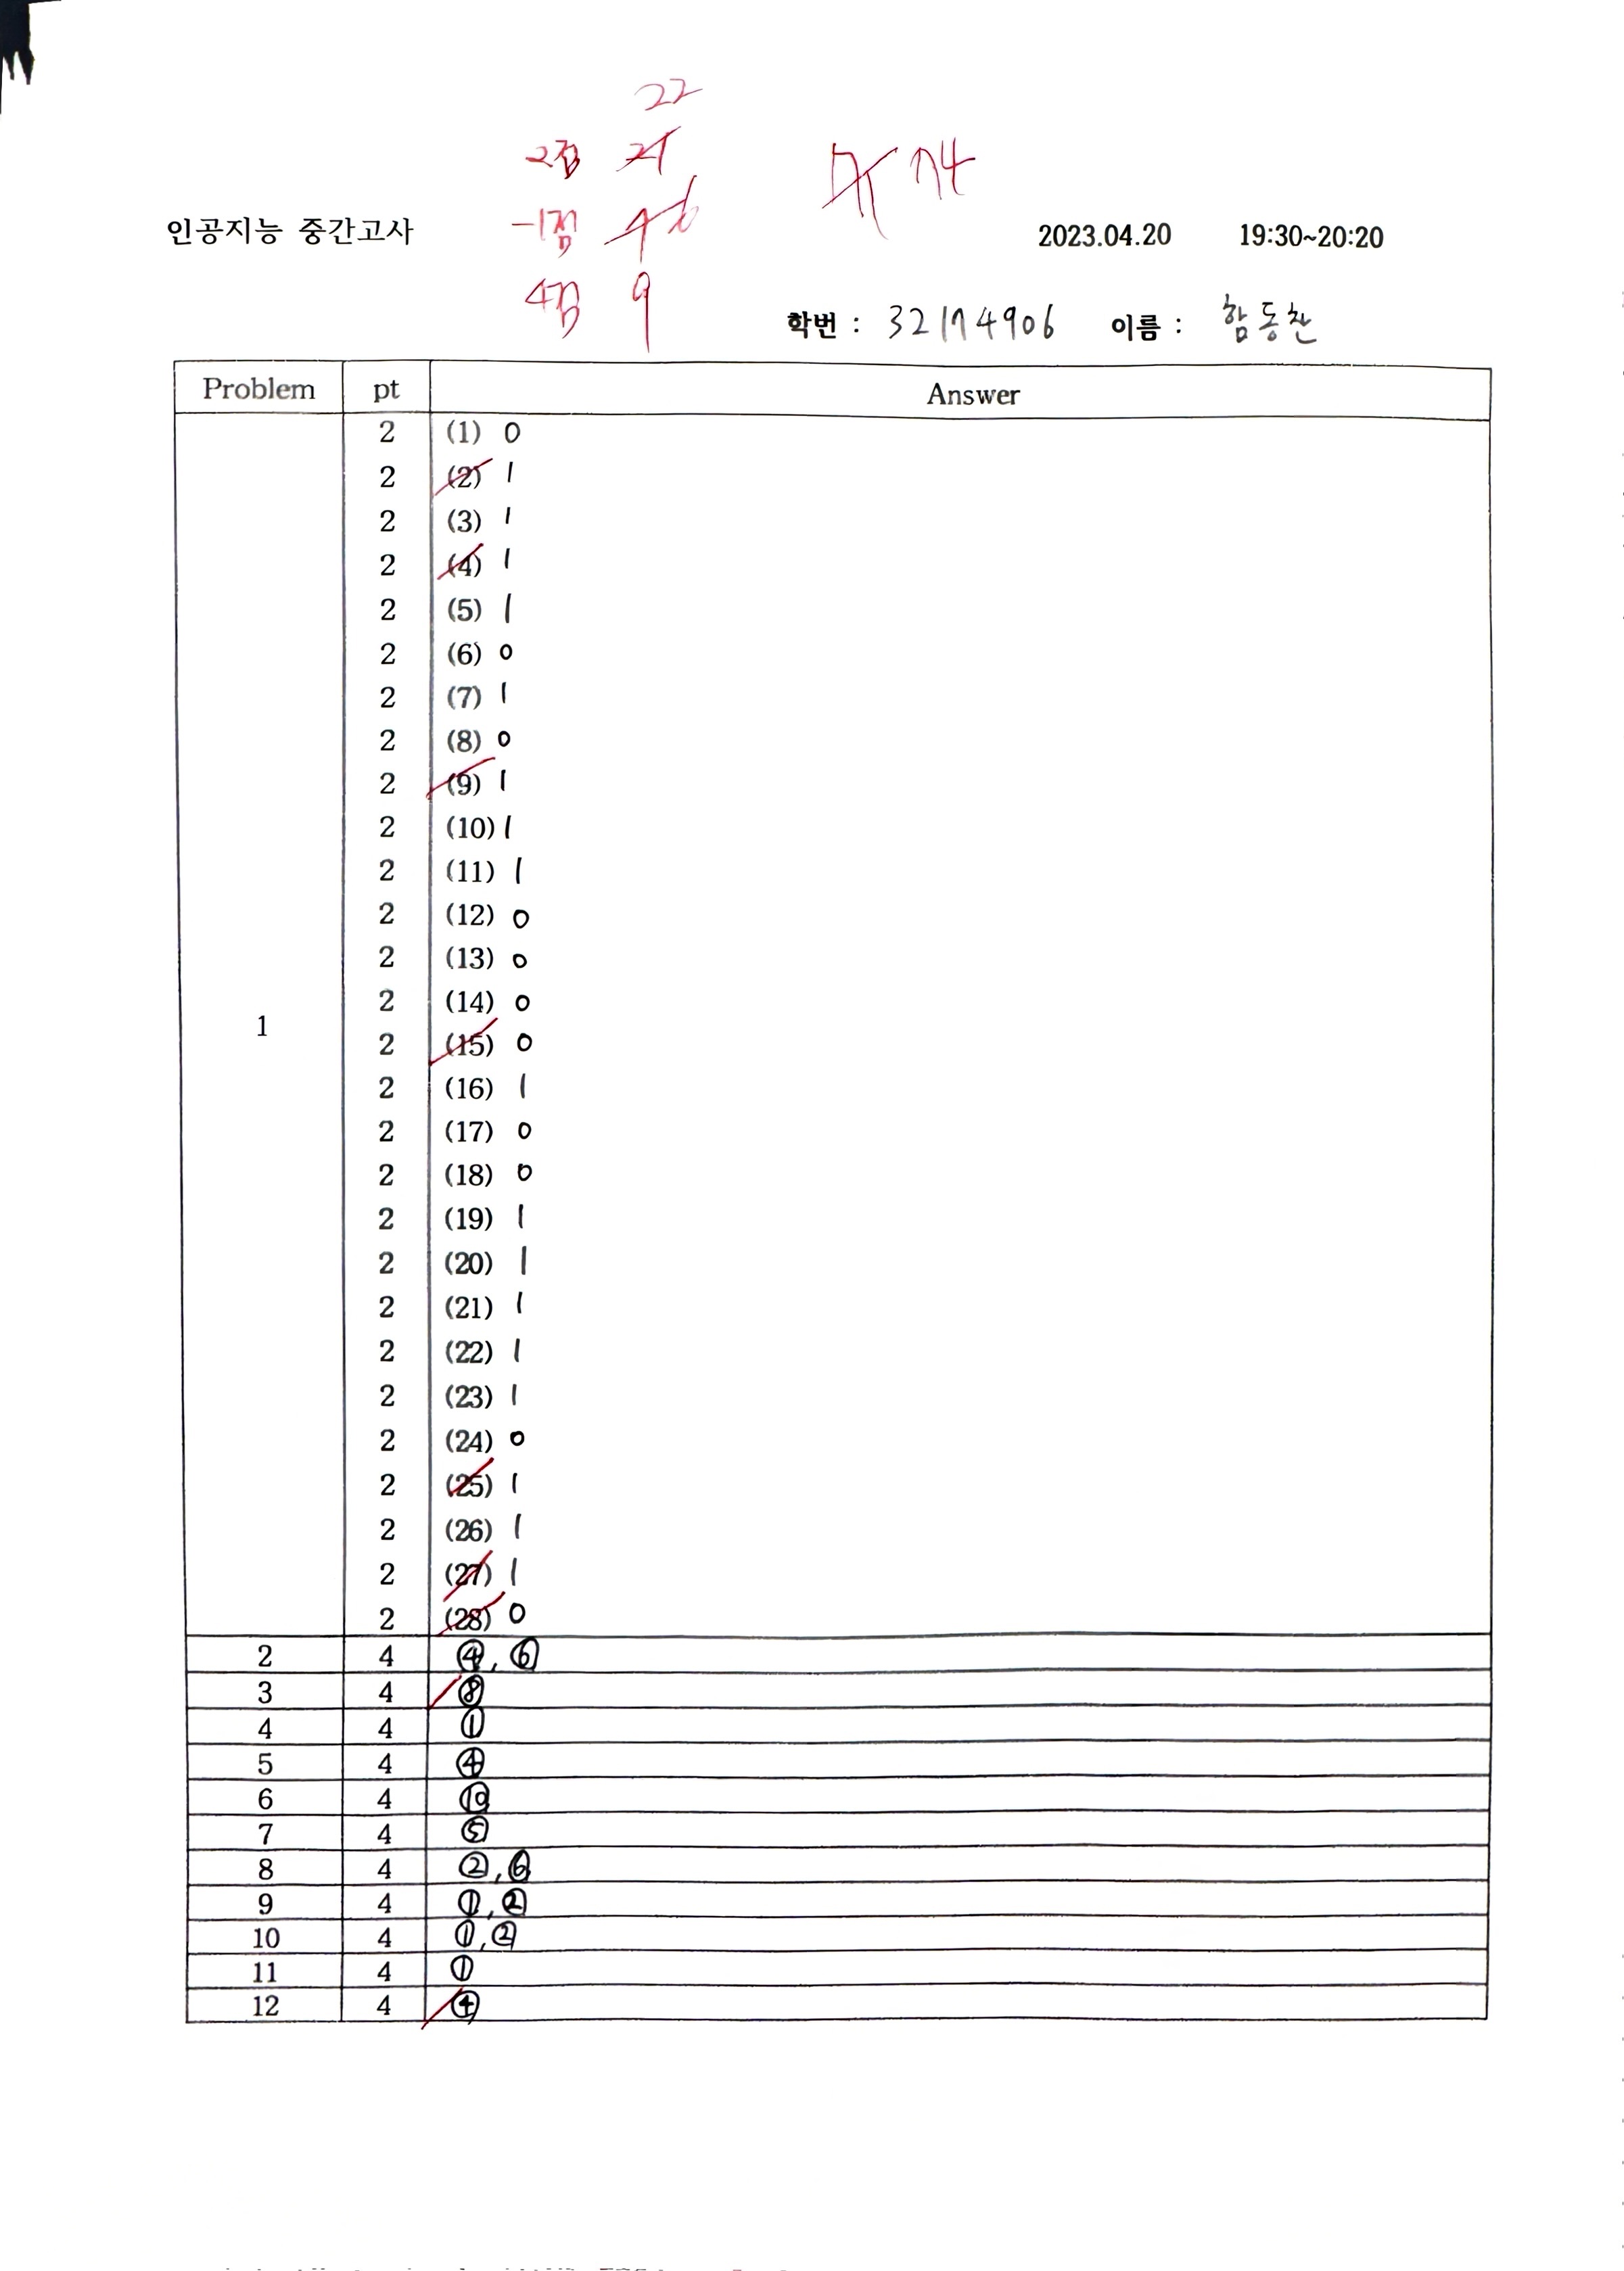 22
2점 21
인공지능 중간고사 -1점 4 6 74 2023.04.20 19:30~20:20
4점 9
학번 : 32174906 이름 : 함동찬
Problem pt Answer
1
2 (1) 0
2 (2) 1
2 (3) 1
2 (4) 1
2 (5) 1
2 (6) 0
2 (7) 1
2 (8) 0
2 (9) 1
2 (10) 1
2 (11) 1
2 (12) 0
2 (13) 0
2 (14) 0
2 (15) 0
2 (16) 1
2 (17) 0
2 (18) 0
2 (19) 1
2 (20) 1
2 (21) 1
2 (22) 1
2 (23) 1
2 (24) 0
2 (25) 1
2 (26) 1
2 (27) 1
2 (28) 0
2 4 ④, ⑥
3 4 ⑧
4 4 ①
5 4 ④
6 4 ⑩
7 4 ⑤
8 4 ②, ⑥
9 4 ①, ②
10 4 ①, ②
11 4 ①
12 4 ④